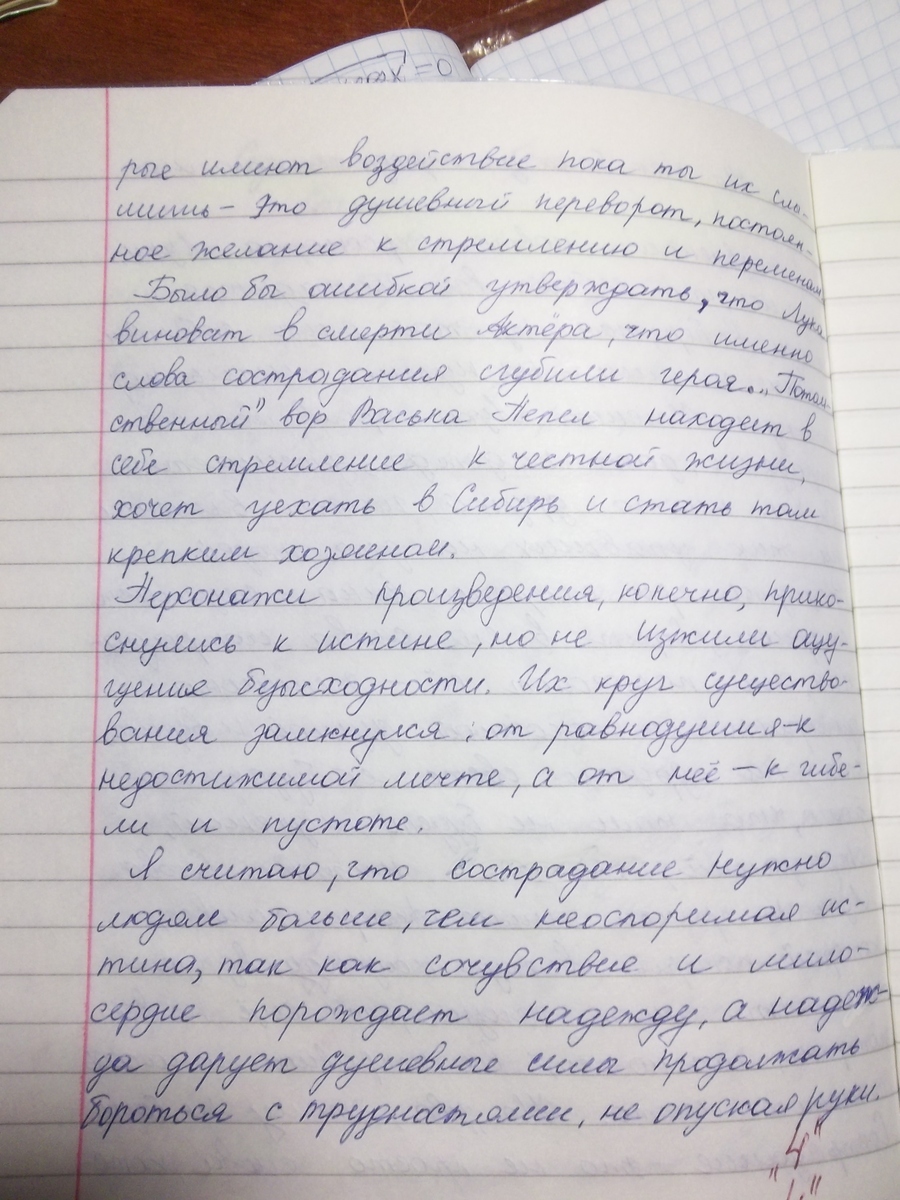 =0
рые имеют воздействие пока ты их слы-
шишь – это душевный переворот, постоян-
ное желание к стремлению и переменам
Было бы ошибкой утверждать, что Лука
виноват в смерти Актёра, что именно
слова сострадания сгубили героя. „Потом-
ственный" вор Васька Пепел находит в
себе стремление к честной жизни,
хочет уехать в Сибирь и стать там
крепким хозяином.
Персонажи произведения, конечно, прико-
снулись к истине, но не изжили ощу-
щения безысходности. Их круг существо-
вания замкнулся: от равнодушия – к
недостижимой мечте, а от неё – к гибе-
ли и пустоте.
Я считаю, что сострадание нужно
людям больше, чем неоспоримая ис-
тина, так как сочувствие и мило-
сердие порождает надежду, а надеж-
да дарует душевные силы продолжать
бороться с трудностями, не опуская руки.
„4"